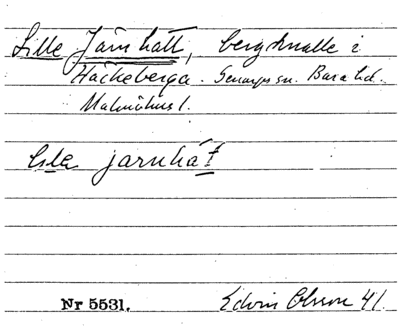 Lille Järnhatt, bergknalle i
Häckeberga. Genarps sn. Bara hd.
Malmöhus l.
järnhat
Nr 5531. Edvin Olsson 41.